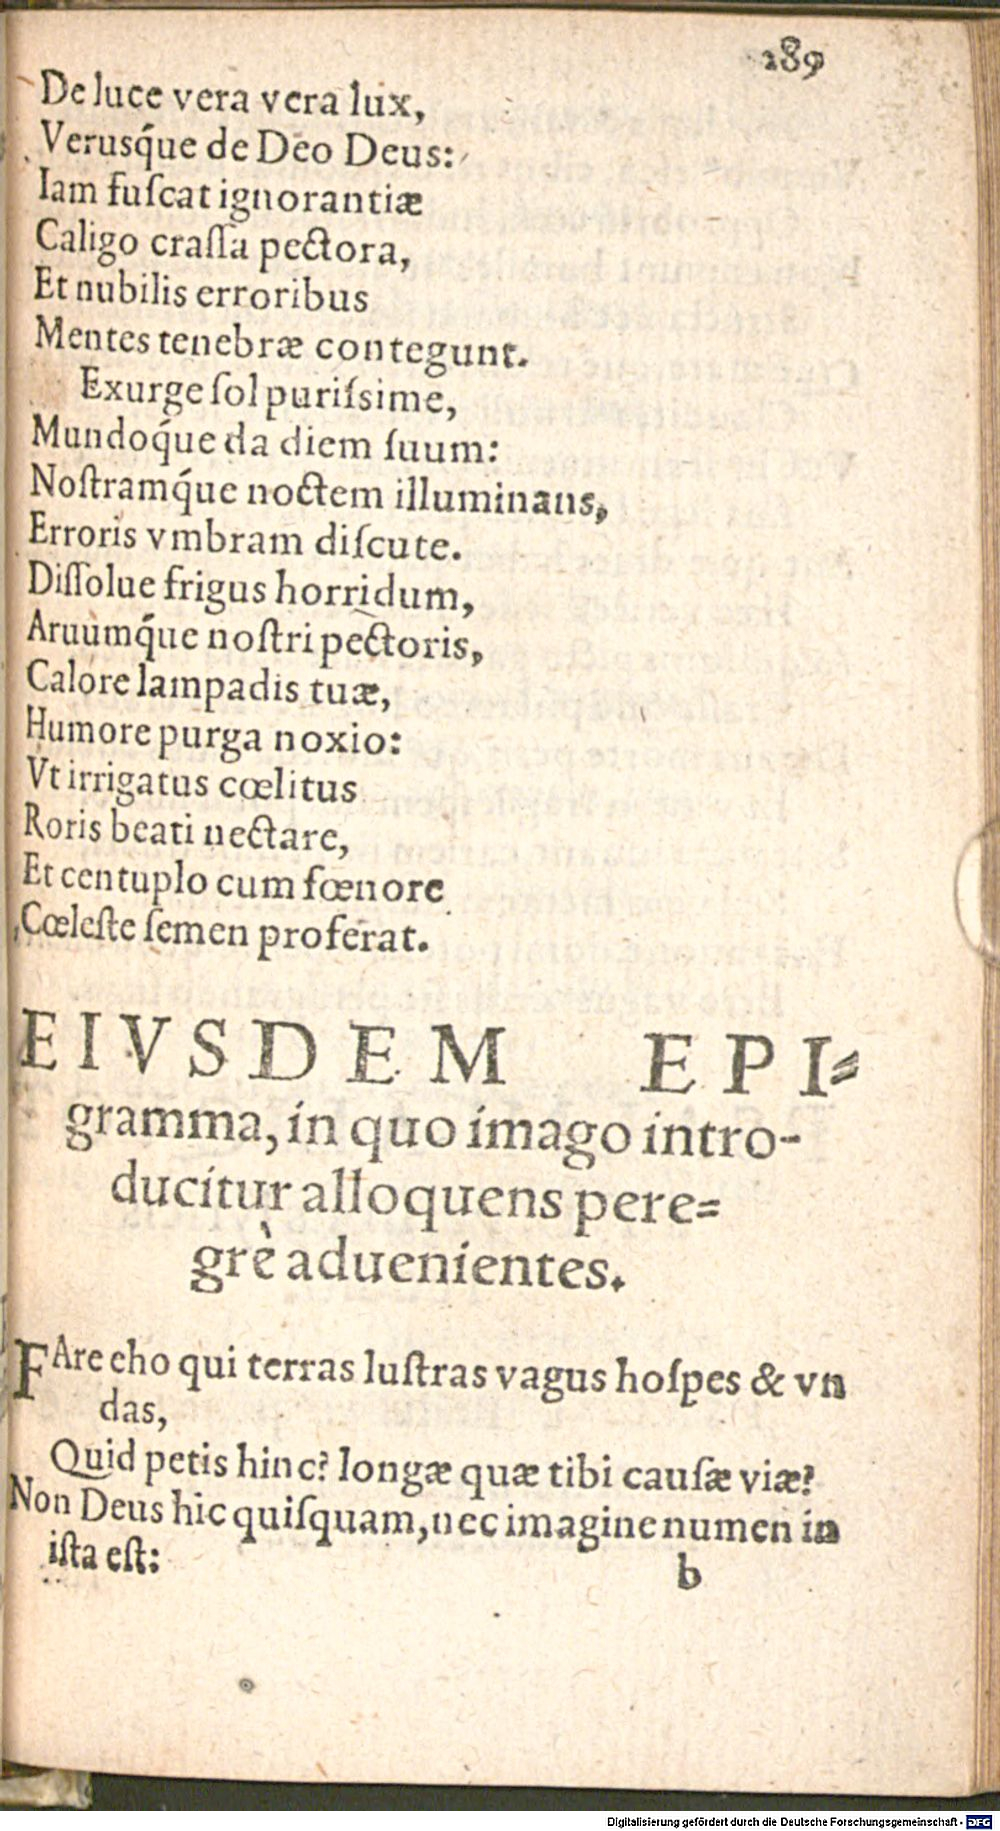 189
De luce vera vera lux,
Verusq́ue de Deo Deus:
Iam fuſcat ignorantiæ
Caligo craſſa pectora,
Et nubilis erroribus
Mentes tenebræ contegunt.
Exurge ſol puriſsime,
Mundoq́ue da diem ſuum:
Noſtramq́ue noctem illuminans,
Erroris vmbram diſcute.
Diſſolue frigus horridum,
Aruumq́ue noſtri pectoris,
Calore lampadis tuæ,
Humore purga noxio:
Vt irrigatus cœlitus
Roris beati nectare,
Et centuplo cum fœnore
Cœleſte ſemen proferat.
EIVSDEM EPI-
gramma, in quo imago intro-
ducitur alloquens pere-
grè aduenientes.
FAre eho qui terras luſtras vagus hoſpes & vn
das,
Quid petis hinc? longæ quæ tibi cauſæ viæ?
Non Deus hic quiſquam, nec imagine numen in
iſta eſt:
b
Digitalisierung gefördert durch die Deutsche Forschungsgemeinschaft - DFG